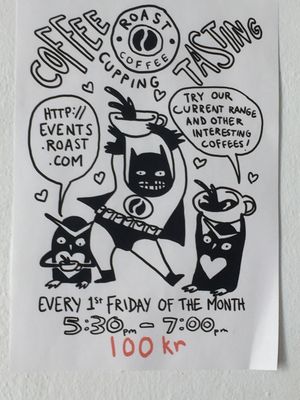 COFFEE
ROAST
COFFEE
CUPPING
TASTING
HTTP://
EVENTS
.ROAST
.COM
TRY OUR
CURRENT RANGE
AND OTHER
INTERESTING
COFFEES!
EVERY 1st FRIDAY OF THE MONTH
5:30pm - 7:00pm
100 kr